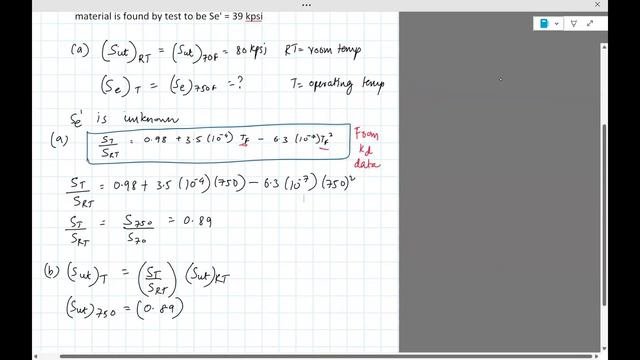 material is found by test to be Se' = 39 kpsi
(a) (Sut)RT = (Sut)70F = 80 kpsi RT = room temp
(Se)T = (Se)750F = ? T = operating temp
Se' is unknown
(a) ST/SRT = 0.98 + 3.5 (10⁻⁴) TF − 6.3 (10⁻⁷) TF² From kd data
ST/SRT = 0.98 + 3.5 (10⁻⁴) (750) − 6.3 (10⁻⁷) (750)²
ST/SRT = S750/S70 = 0.89
(b) (Sut)T = (ST/SRT) (Sut)RT
(Sut)750 = (0.89)